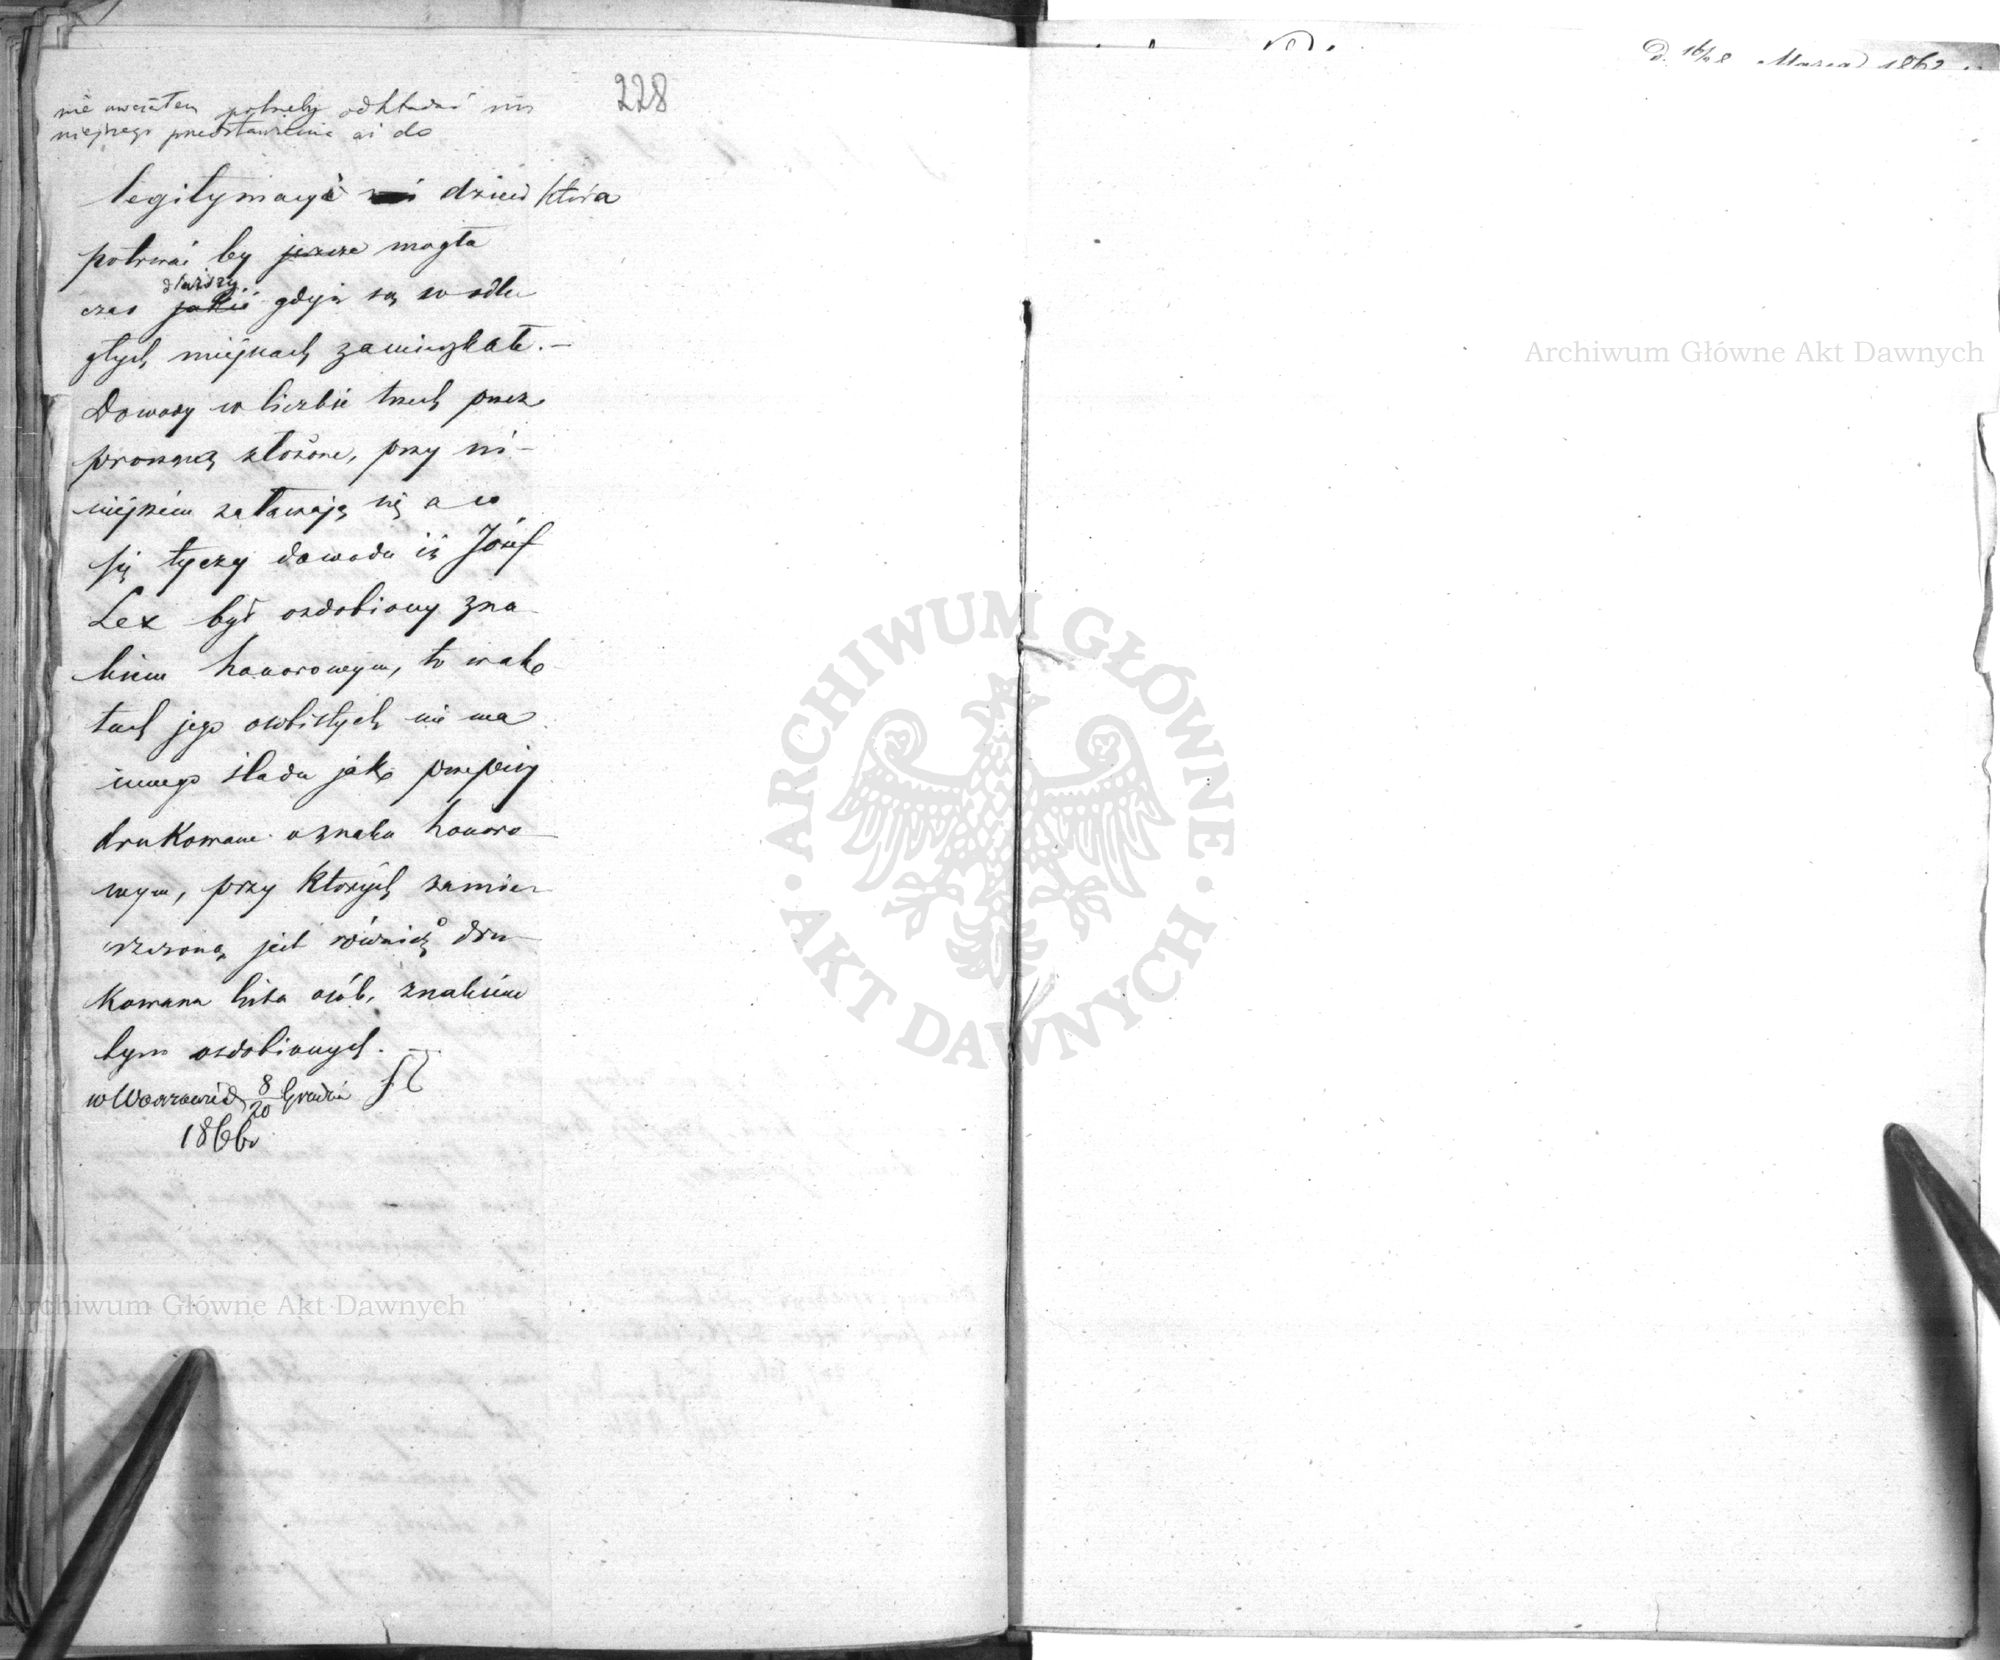 228
nie uważałem potrzeby odkładać ni
niejszego przedstawienia aż do
legitymacyi dzieci która
potrwać by jeszcze mogła
dłuższy
czas jakiś gdyż są w odle
głych miejscach zamieszkałe.—
Dowody w liczbie trzech przez
proszącą złożone, przy ni-
niejszém załączają się a co
się tyczy dowodu iż Józef
Lex był ozdobiony zna-
kiem honorowym, to w ak
tach jego osobistych nie ma
innego śladu jak przepisy
drukowane o znaku honoro-
wym, przy których zamie-
szczoną jest również dru-
kowana lista osób, znakiem
tym ozdobionych.—
w Warszawie 8/20 Grudnia
1866
D. 16/28 Marca 1862
Archiwum Główne Akt Dawnych
Archiwum Główne Akt Dawnych
ARCHIWUM GŁÓWNE
AKT DAWNYCH